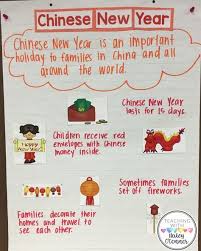 Chinese New Year
Chinese New Year is an important
holiday to families in China and all
around the world.
Chinese New Year
lasts for 15 days.
Children receive red
envelopes with Chinese
money inside.
Sometimes families
set off fireworks.
Families decorate their
homes and travel to
see each other.
TEACHING
WITH
Haley
O'Connor